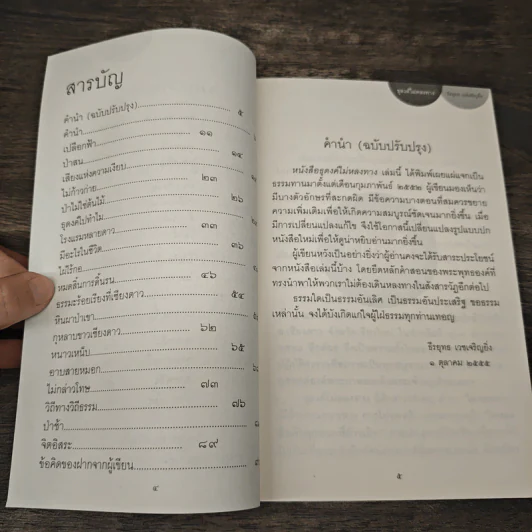 สารบัญ
คำนำ (ฉบับปรับปรุง)........................ ๕
คำนำ........................
เปลือกฟ้า........................ ๑๑
ป่าสน........................
เสียงแห่งความเงียบ........................ ๑๔
ไม่ก้าวก่าย........................ ๒๓
ป่าไม่ใช่ต้นไม้........................ ๒๖
ธุดงค์ไปทำไม........................
โรงแรมหลายดาว........................ ๓๓
มีอะไรในชีวิต........................ ๓๖
ไม่ไร้กอ........................
หมดตื่นการดิ้นรน........................ ๔๖
ธรรมะร้อยเรียงที่เชียงดาว........................ ๕๔
หินผาป่าเขา........................
กุหลาบขาวเชียงดาว........................ ๖๒
หนาวเหน็บ........................ ๖๕
อาบสายหมอก........................
ไม่กล่าวโทษ........................ ๗๓
วิถีทางวิถีธรรม........................ ๗๖
ป่าช้า........................
จิตอิสระ........................ ๘๙
ข้อคิดของฝากจากผู้เขียน........................
๔
ธุดงค์ไม่หลงทาง
คำนำ (ฉบับปรับปรุง)
หนังสือธุดงค์ไม่หลงทาง เล่มนี้ ได้พิมพ์เผยแผ่แจกเป็น
ธรรมทานมาตั้งแต่เดือนกุมภาพันธ์ ๒๕๕๒ ผู้เขียนมองเห็นว่า
มีบางตัวอักษรที่สะกดผิด มีข้อความบางตอนที่สมควรขยาย
ความเพิ่มเติมเพื่อให้เกิดความสมบูรณ์ชัดเจนมากยิ่งขึ้น เมื่อ
มีการเปลี่ยนแปลงแก้ไข จึงใช้โอกาสนี้เปลี่ยนแปลงรูปแบบปก
หนังสือใหม่เพื่อให้ดูน่าหยิบอ่านมากยิ่งขึ้น
ผู้เขียนหวังเป็นอย่างยิ่งว่าผู้อ่านคงจะได้รับสาระประโยชน์
จากหนังสือเล่มนี้บ้าง โดยยึดหลักคำสอนของพระพุทธองค์ที่
ทรงนำพาให้พวกเราไม่ต้องเดินหลงทางในสังสารวัฏอีกต่อไป
ธรรมใดเป็นธรรมอันเลิศ เป็นธรรมอันประเสริฐ ขอธรรม
เหล่านั้น จงได้บังเกิดแก่ใจผู้ใฝ่ธรรมทุกท่านเทอญ
ธีรยุทธ เวชเจริญยิ่ง
๑ ตุลาคม ๒๕๕๕
๕